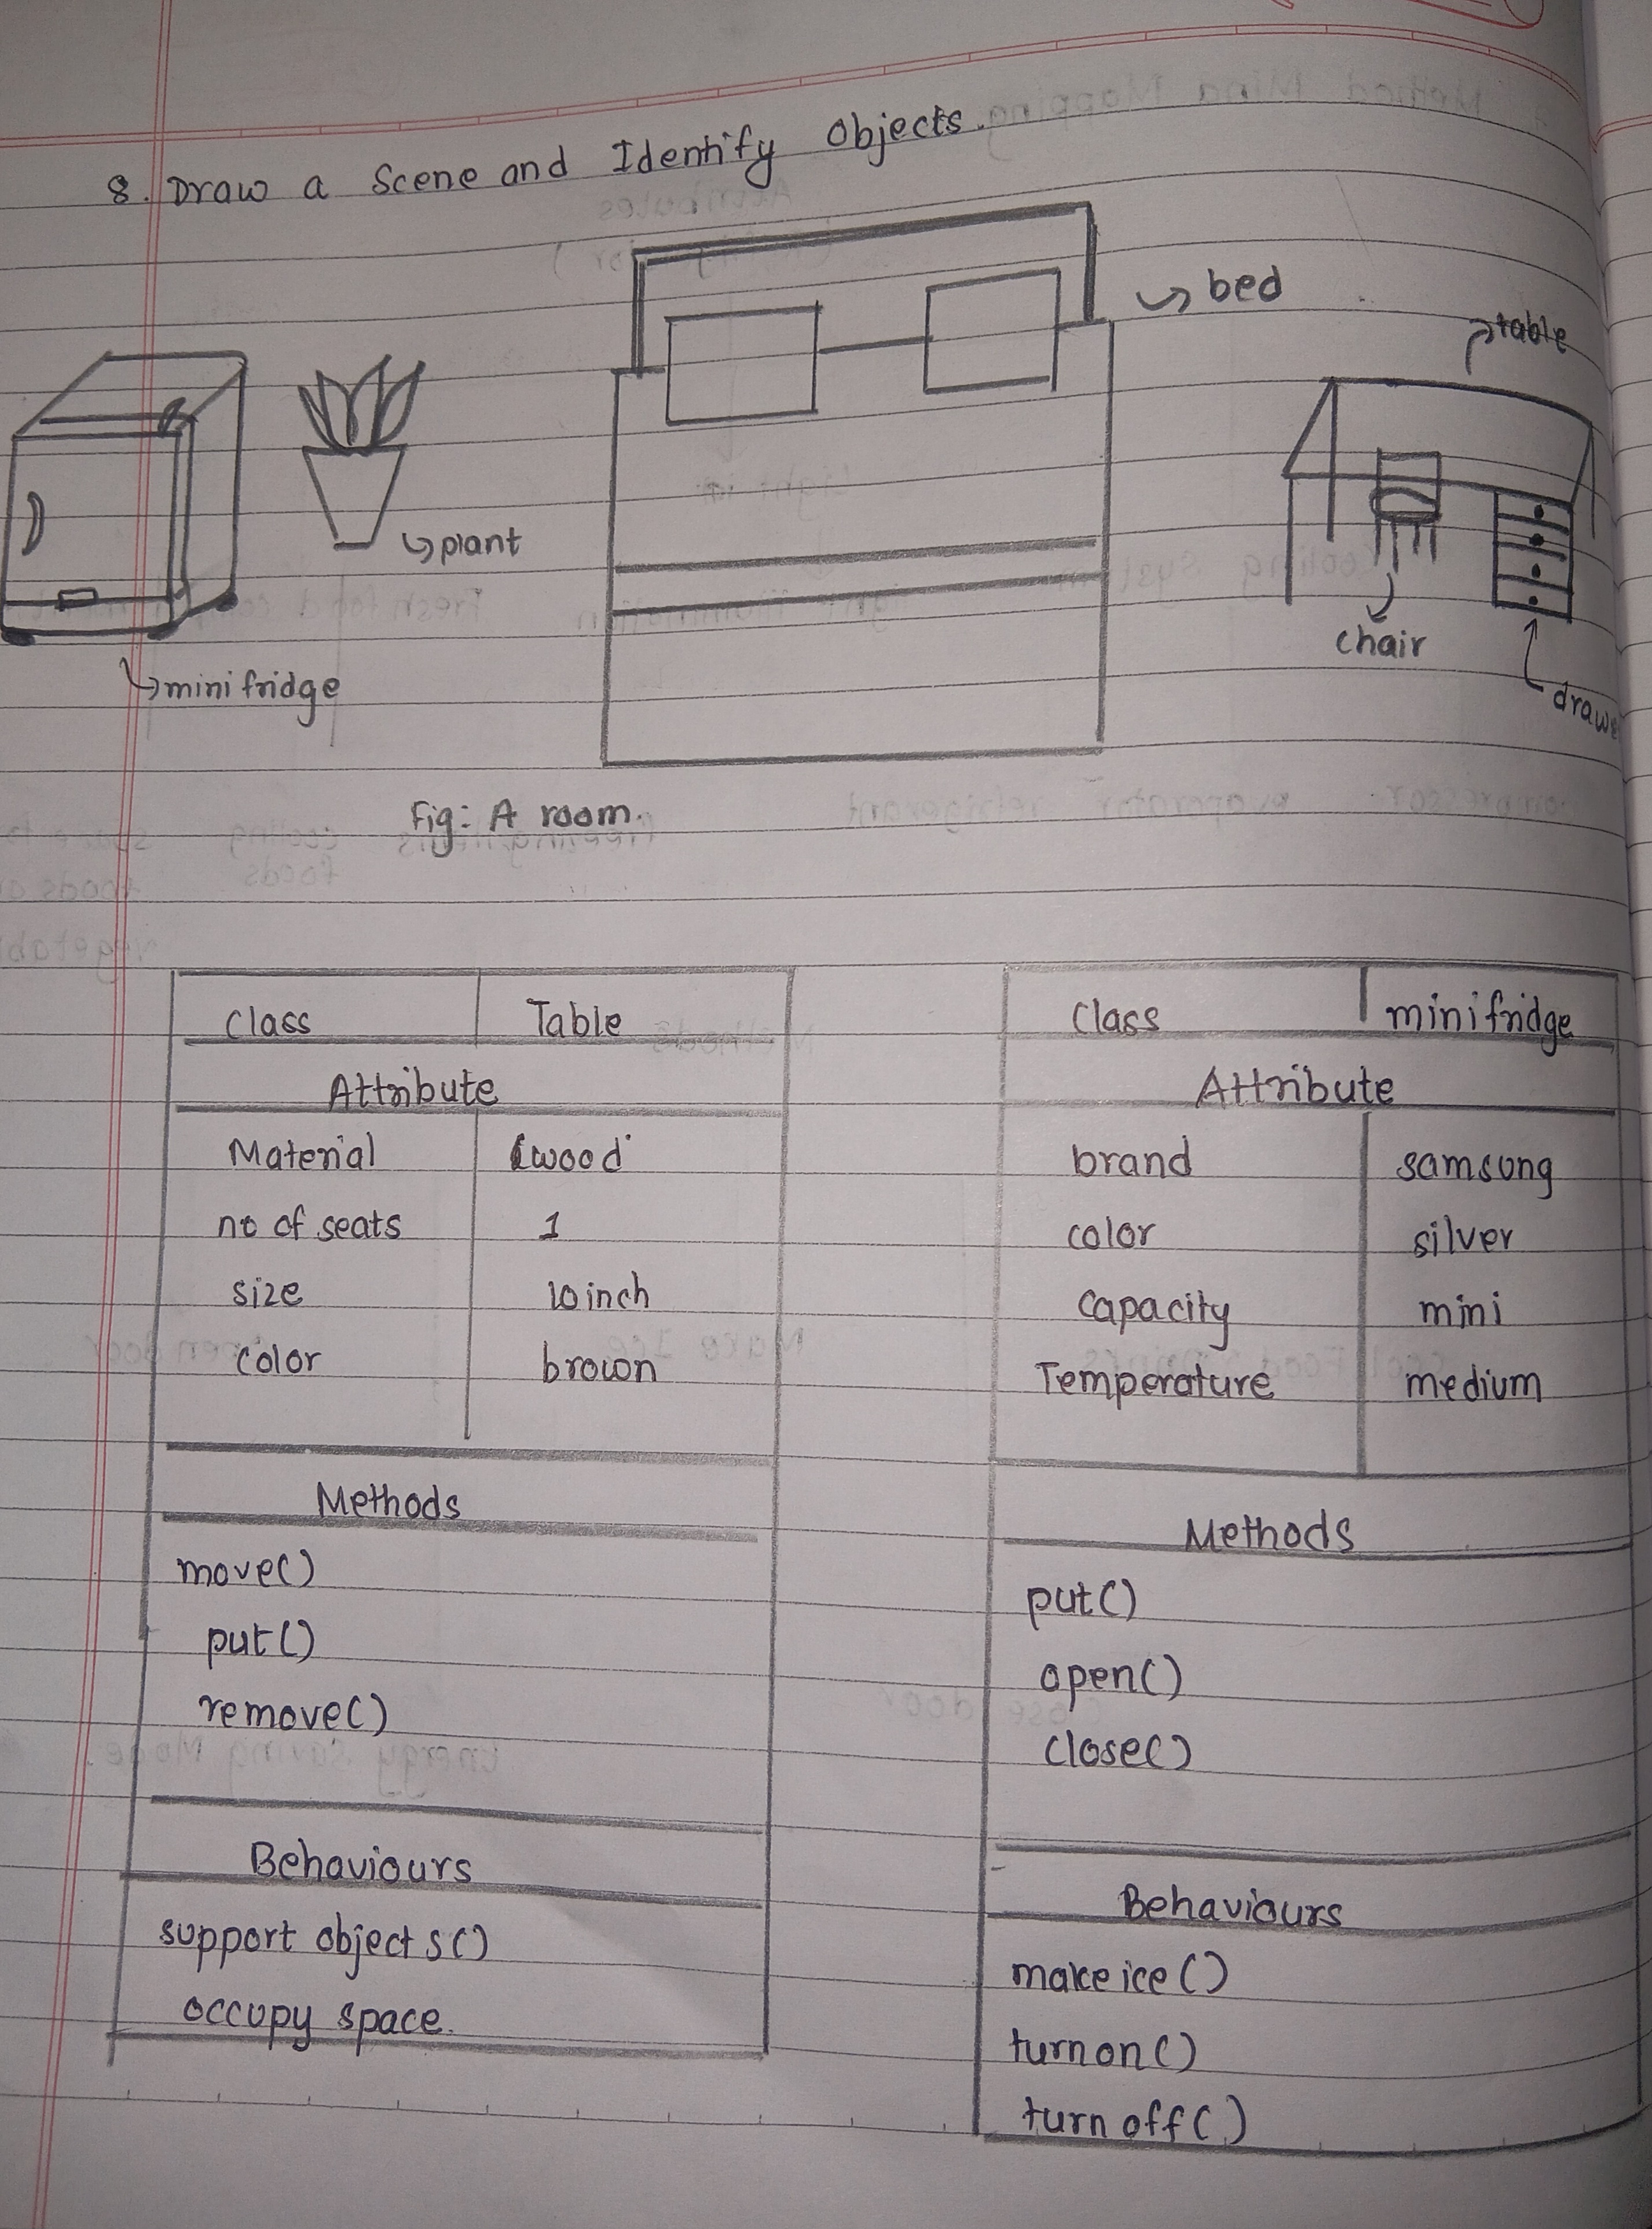 8. Draw a Scene and Identify Objects.
bed
table
plant
chair
minifridge
Fig: A room.
Class Table
Attribute
Material wood
no of seats 1
size 10 inch
color brown
Methods
move()
put()
remove()
Behaviours
support objects()
occupy space.
Class minifridge
Attribute
brand samsung
color silver
capacity mini
Temperature medium
Methods
put()
open()
close()
Behaviours
make ice()
turn on()
turn off()